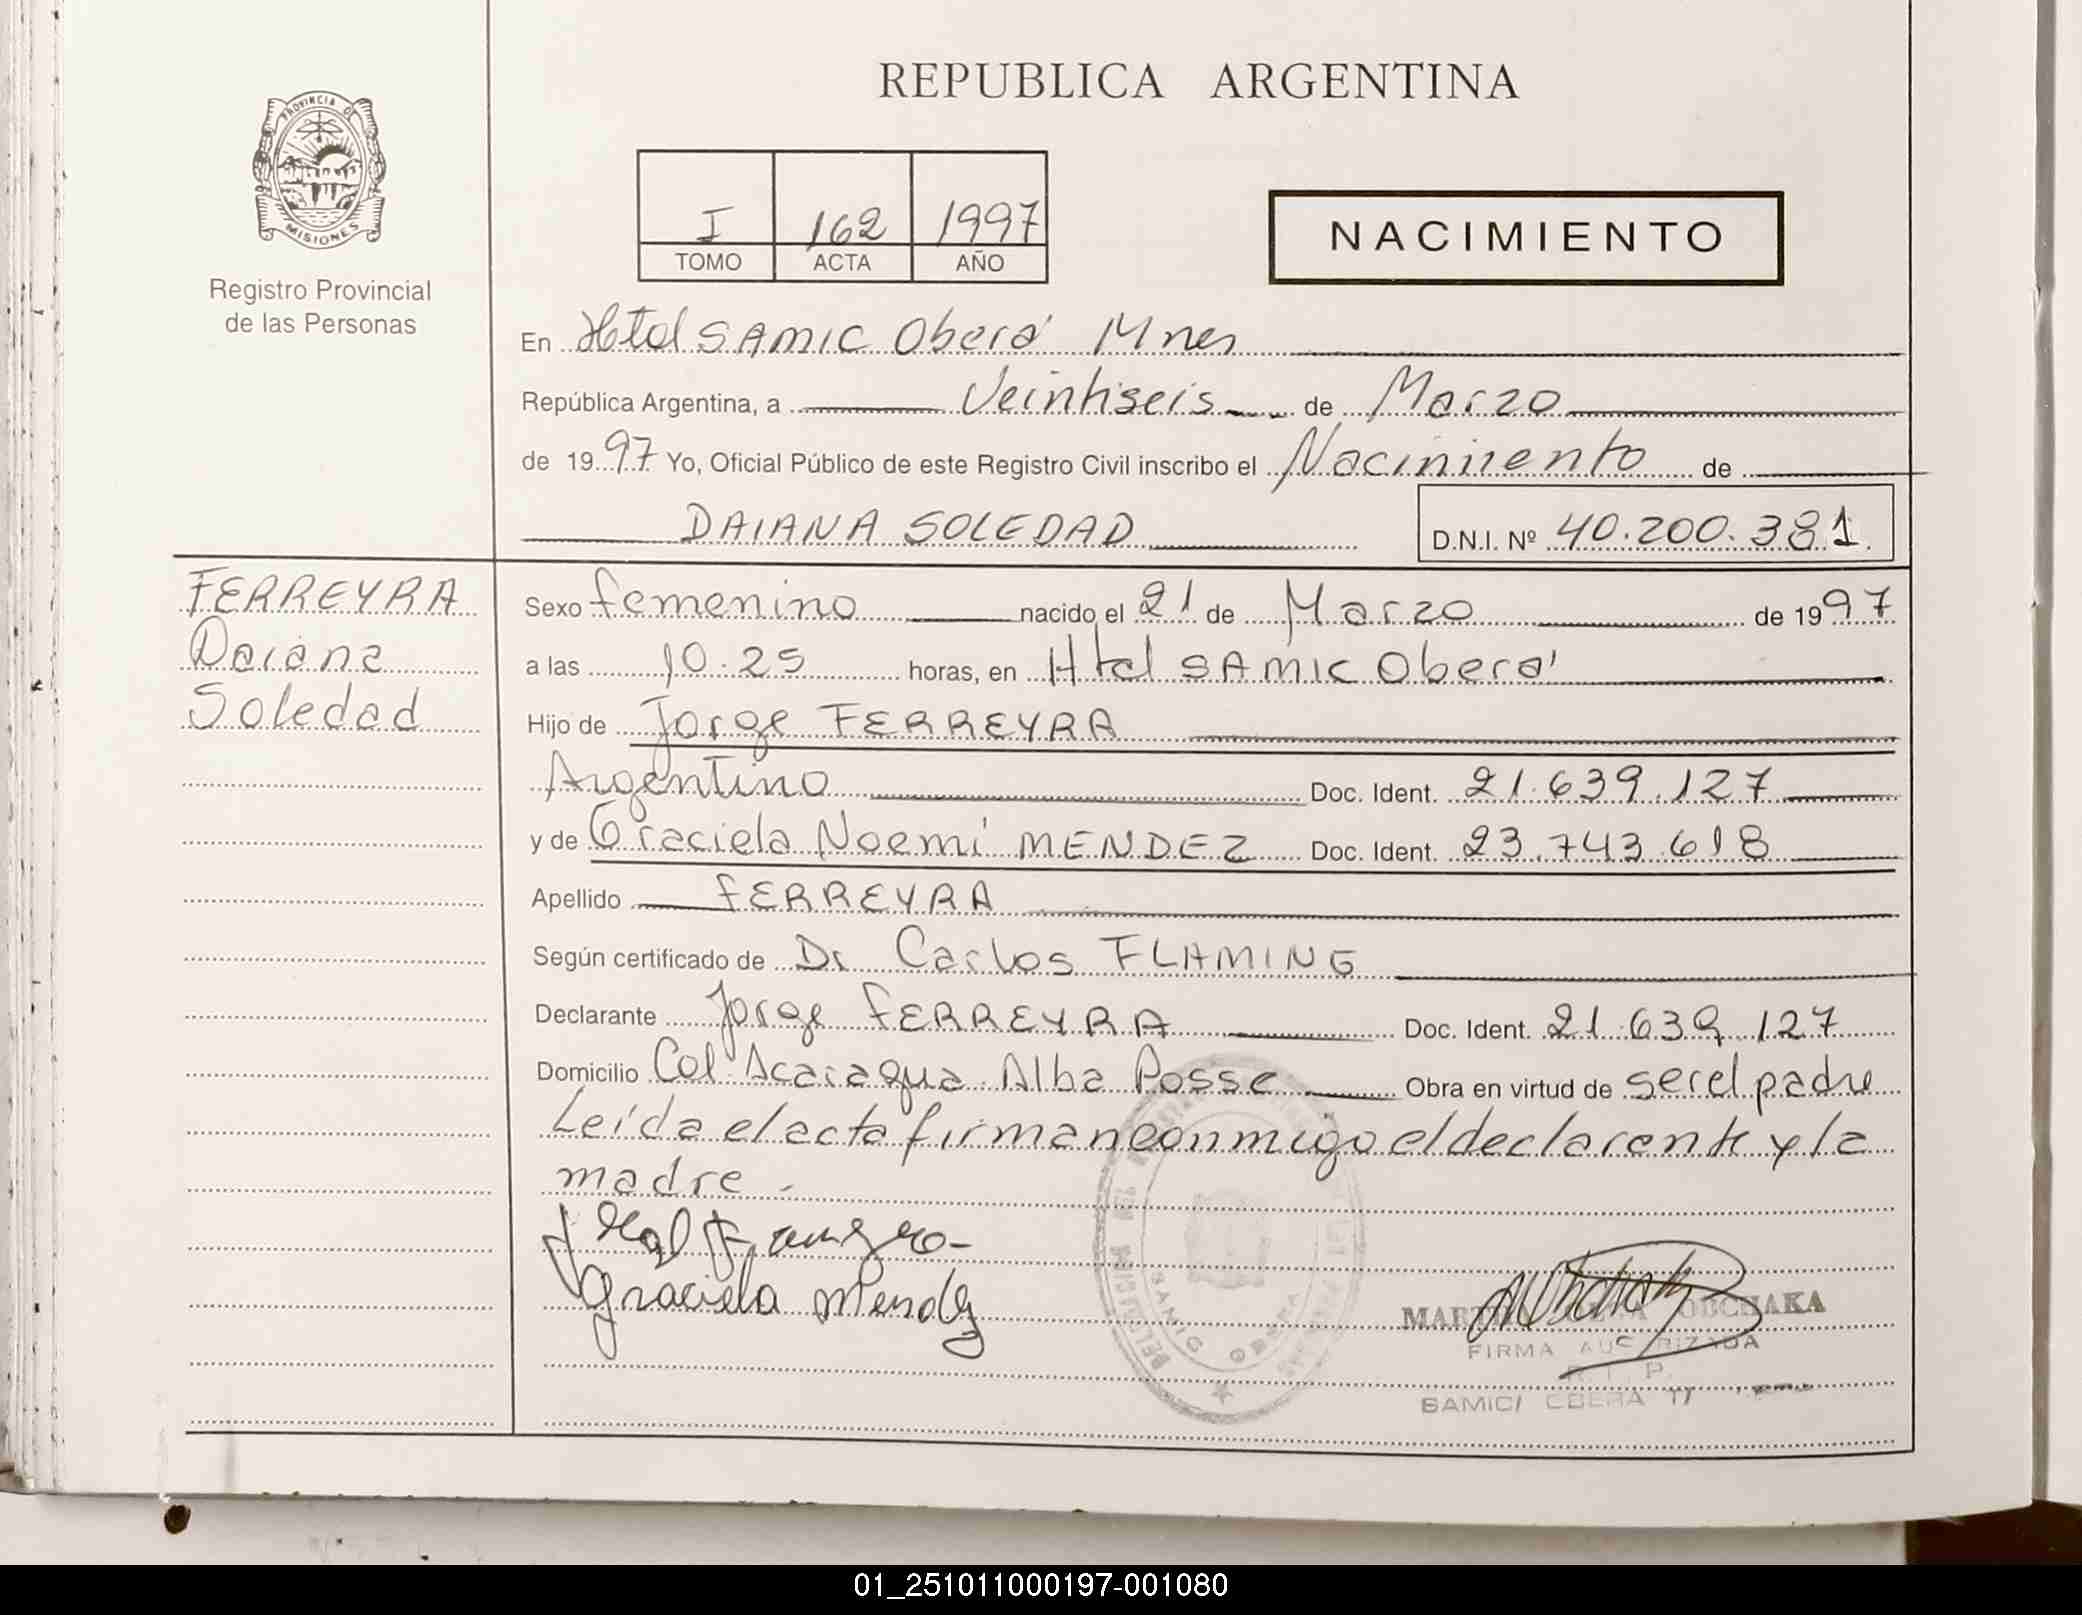 REPUBLICA ARGENTINA
PROVINCIA DE
MISIONES
Registro Provincial
de las Personas
I 162 1997
TOMO ACTA AÑO
NACIMIENTO
En Htal SAMIC Oberá Mnes
República Argentina, a Veintiseis de Marzo
de 1997 Yo, Oficial Público de este Registro Civil inscribo el Nacimiento de
DAIANA SOLEDAD D.N.I. Nº 40.200.381
FERREYRA
Daiana
Soledad
Sexo femenino nacido el 21 de Marzo de 1997
a las 10.25 horas, en Htal SAMIC Oberá
Hijo de Jorge FERREYRA
Argentino Doc. Ident. 21.639.127
y de Graciela Noemí MENDEZ Doc. Ident. 23.743.618
Apellido FERREYRA
Según certificado de Dr Carlos FLAMING
Declarante Jorge FERREYRA Doc. Ident. 21.639.127
Domicilio Col. Acaragua Alba Posse Obra en virtud de ser el padre
Leída el acta firman conmigo el declarante y la
madre.-
Graciela Mendez
OBCHAKA
FIRMA AUTORIZADA
SAMIC OBERA
01_251011000197-001080